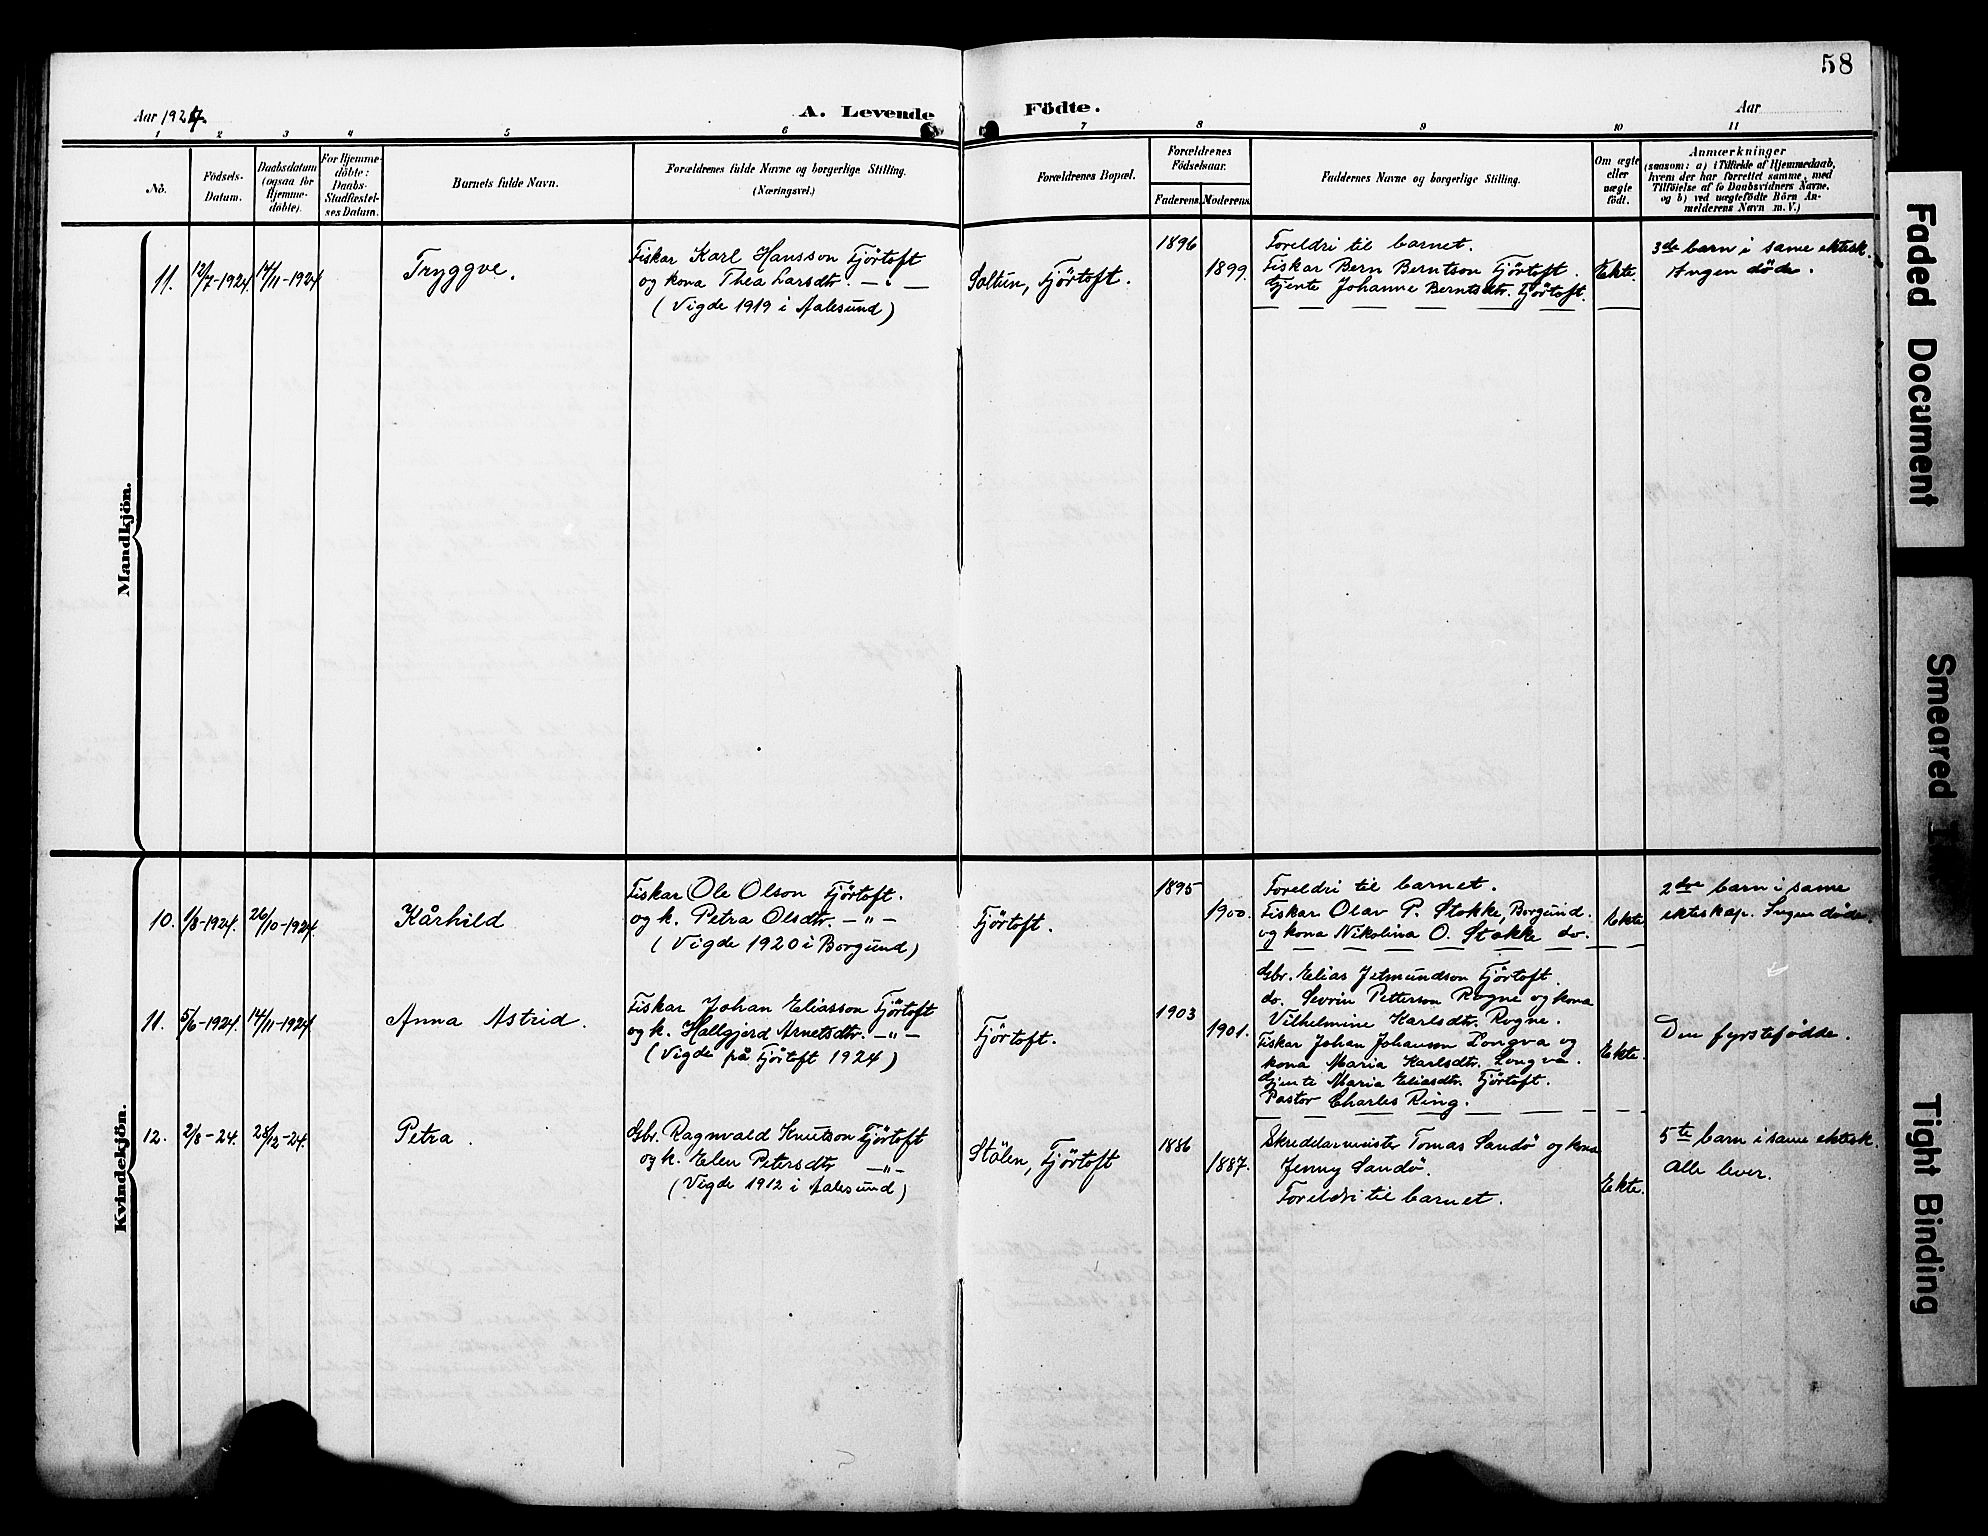 58
Aar 1924.
A. Levende Födte.
Aar
1 2 3 4 5 6 7 8 9 10 11
No.
Födsels-
Datum.
Daabsdatum
(ogsaa for
Hjemme-
döbte).
For Hjemme-
döbte:
Daabs-
Stadfæstel-
ses Datum.
Barnets fulde Navn.
Forældrenes fulde Navne og borgerlige Stilling.
(Næringsvei.)
Forældrenes Bopæl.
Forældrenes
Födselsaar.
Faderens. Moderens.
Faddernes Navne og borgerlige Stilling.
Om ægte
eller
uægte
födt.
Anmærkninger
(saasom: a) i Tilfælde af Hjemmedaab,
hvem der har forrettet samme, med
Tilföielse af to Daabsvidners Navne,
og b) ved uægtefödte Börn An-
melderens Navn m. V.)
Mandkjön.
11.
12/7-1924.
14/11-1924
Tryggve.
Fiskar Karl Hansson Fjörtoft
og kona Thea Larsdtr. — " —
(Vigde 1919 i Aalesund)
Saltun, Fjörtoft.
1896
1899
Foreldri til barnet.
Fiskar Bern Berntson Fjörtoft.
Gjente Johanne Berntsdtr. Fjörtoft.
Ekte.
3de barn i same ektesk.
Ingen döde.
Kvindekjön.
10.
1/8-1924.
26/10-1924.
Kårhild
Fiskar Ole Olson Fjörtoft.
og k. Petra Olsdtr. — " —
(Vigde 1920 i Borgund)
Fjörtoft.
1895
1900.
Foreldri til barnet.
Fiskar Olav P. Stokke, Borgund.
og kona Nikolina O. Stokke do.
Ekte
2dre barn i same
ekteskap. Ingen döde.
11.
5/6-1924.
14/11-1924
Anna Astrid.
Fiskar Johan Eliasson Fjörtoft
og k. Hallgjerd Arnetsdtr. — " —
(Vigde på Fjörtoft 1924)
Fjörtoft.
1903
1901.
Gbr. Elias Jetmundson Fjörtoft.
do. Sevrin Petterson Rogne og kona
Vilhelmine Karlsdtr. Rogne.
Fiskar Johan Johansen Longva og
kona Maria Karlsdtr. Longva.
Gjente Maria Eliasdtr. Fjörtoft.
Pastor Charles Ring.
Ekte.
Den fyrstefødde.
12.
2/8-24.
28/12-24.
Petra.
Gbr. Ragnvald Knutson Fjörtoft
og k. Elen Petersdtr — " —
(Vigde 1912 i Aalesund)
Stölen, Fjörtoft
1886
1887.
Skreddarmeister Tomas Sandö og kona
Jenny Sandö.
Foreldri til barnet.
Ekte.
5te barn i same ektesk.
Alle lever.
Faded Document
Smeared
Tight Binding